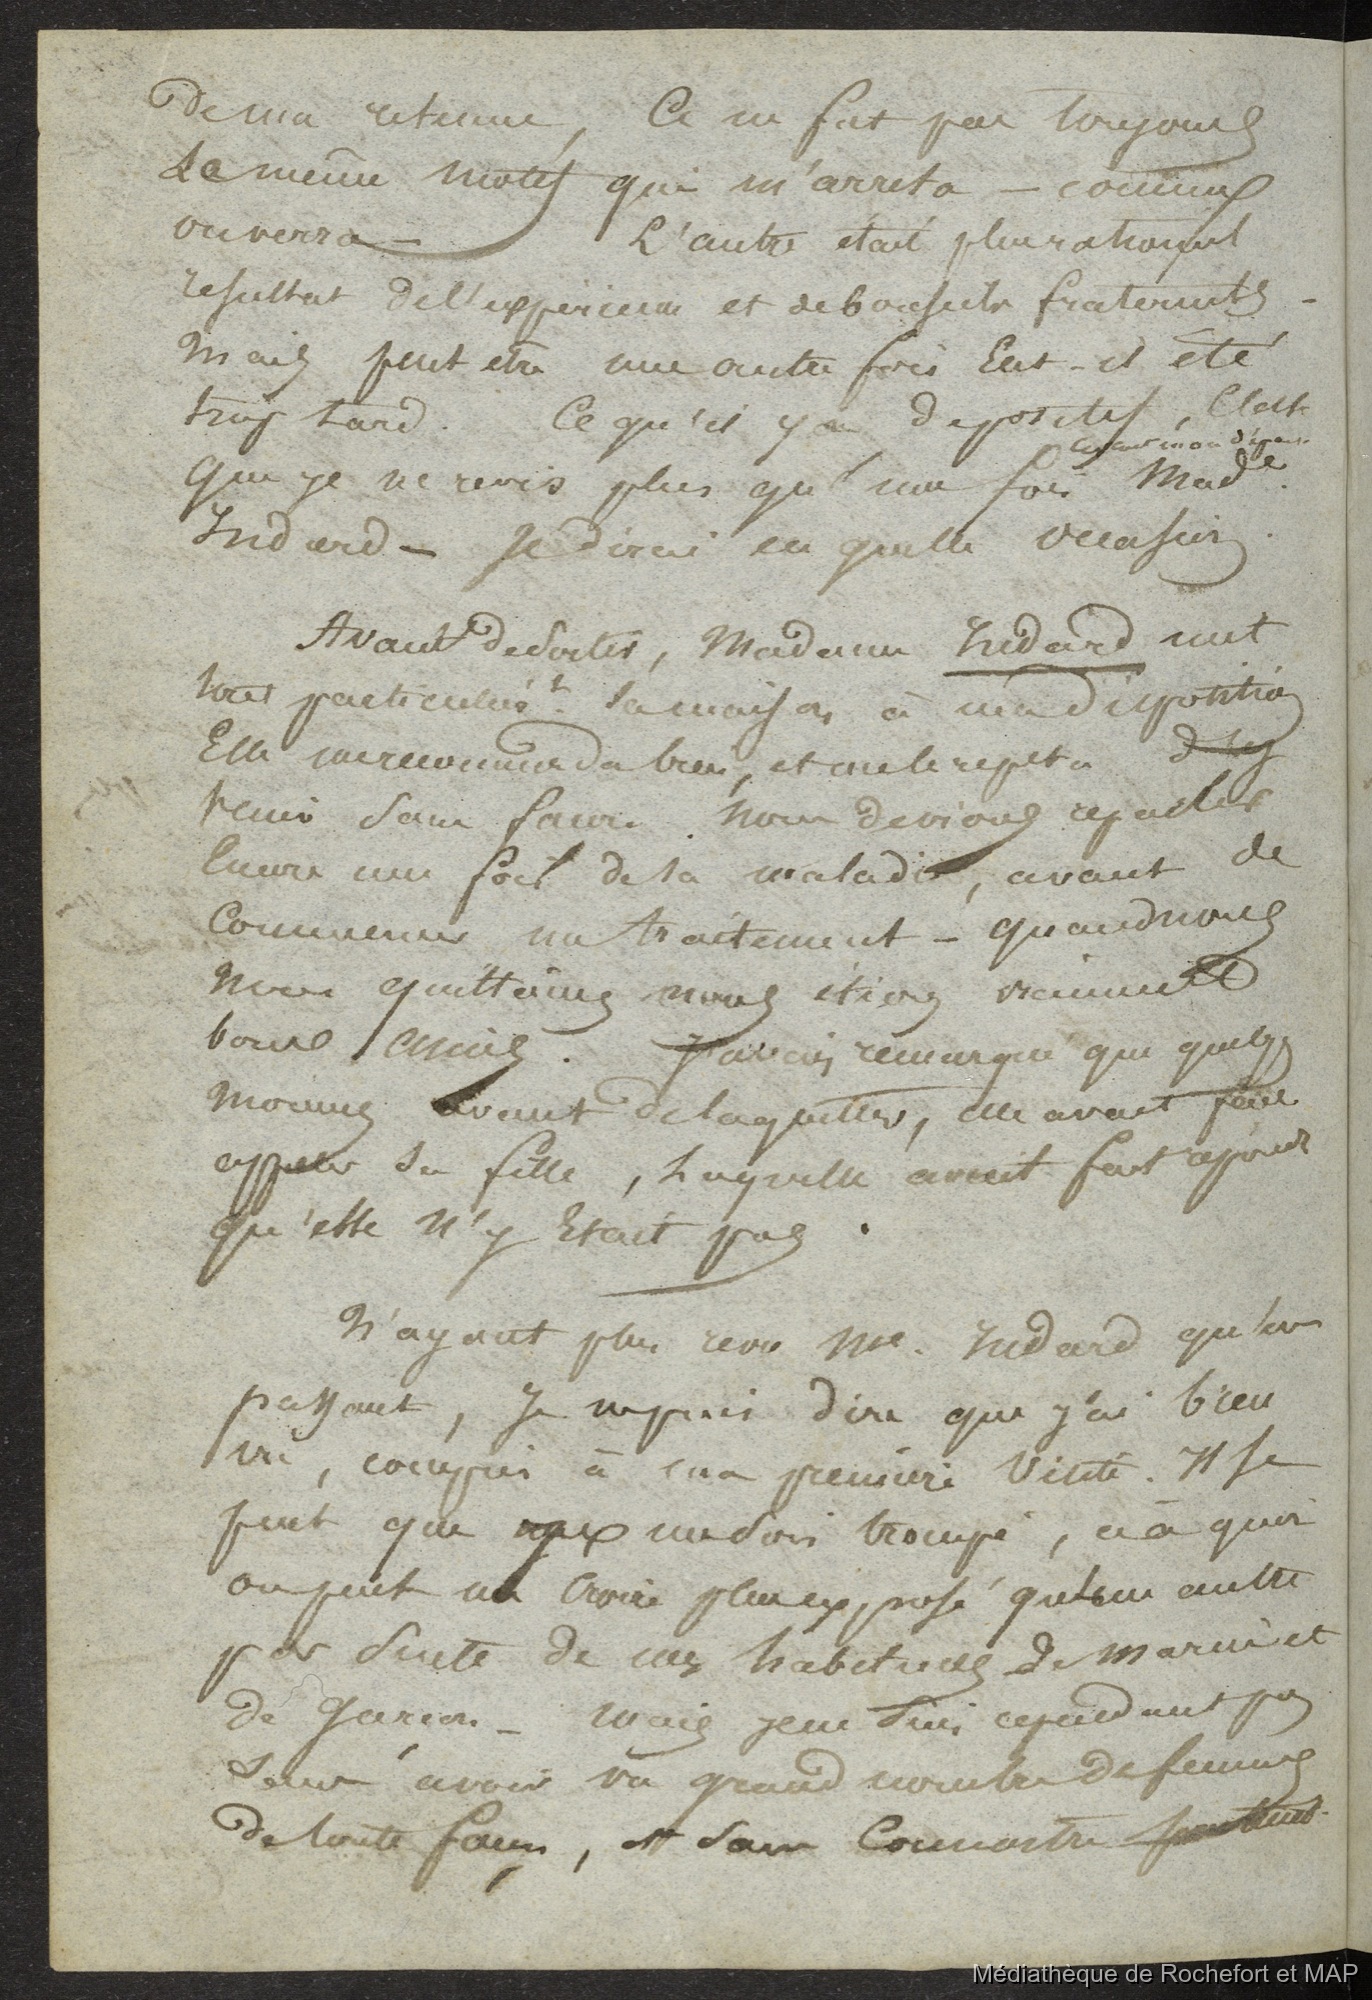 de ma retenue, Ce ne fut pas toujours
Le même motif qui m'arreta – comme
on verra – L'autre était plus rationnel
resultat de l'experience et de bons fraternels –
Mais peut etre une autre fois Eut-il été
trop tard. Ce qu'il y a de positif, C'est
que je ne revis plus qu'une fois Made
Indard – Je dirai en quelle occasion.
Avant de sortir, Madame Indard mit
tout particulièrt sa maison à ma disposition
Elle me recommanda bien, et me le repeta d'y
venir sans façon. Nous devions reparler
Encore une fois de la maladie, avant de
Commencer un traitement – quand nous
nous quittames nous étions vraiment
bons amis. J'avais remarqué que quelqs
momens avant de la quitter, elle avait fait
appeler sa fille, Laquelle avait fait repondre
qu'elle n'y Etait pas.
N'ayant plus revu Me. Indard qu'en
passant, Je ne puis dire que j'ai bien
vu, compris à ma premiere Visite. Il se
peut que je me sois trompé, ce à quoi
on peut me Croire plus exposé qu'un autre
par suite de mes habitudes de marin et
de Garçon – mais je ne suis cependant pas
sans avoir vu grand nombre de femmes
de toute façon, et sans Connaitre
Médiathèque de Rochefort et MAP